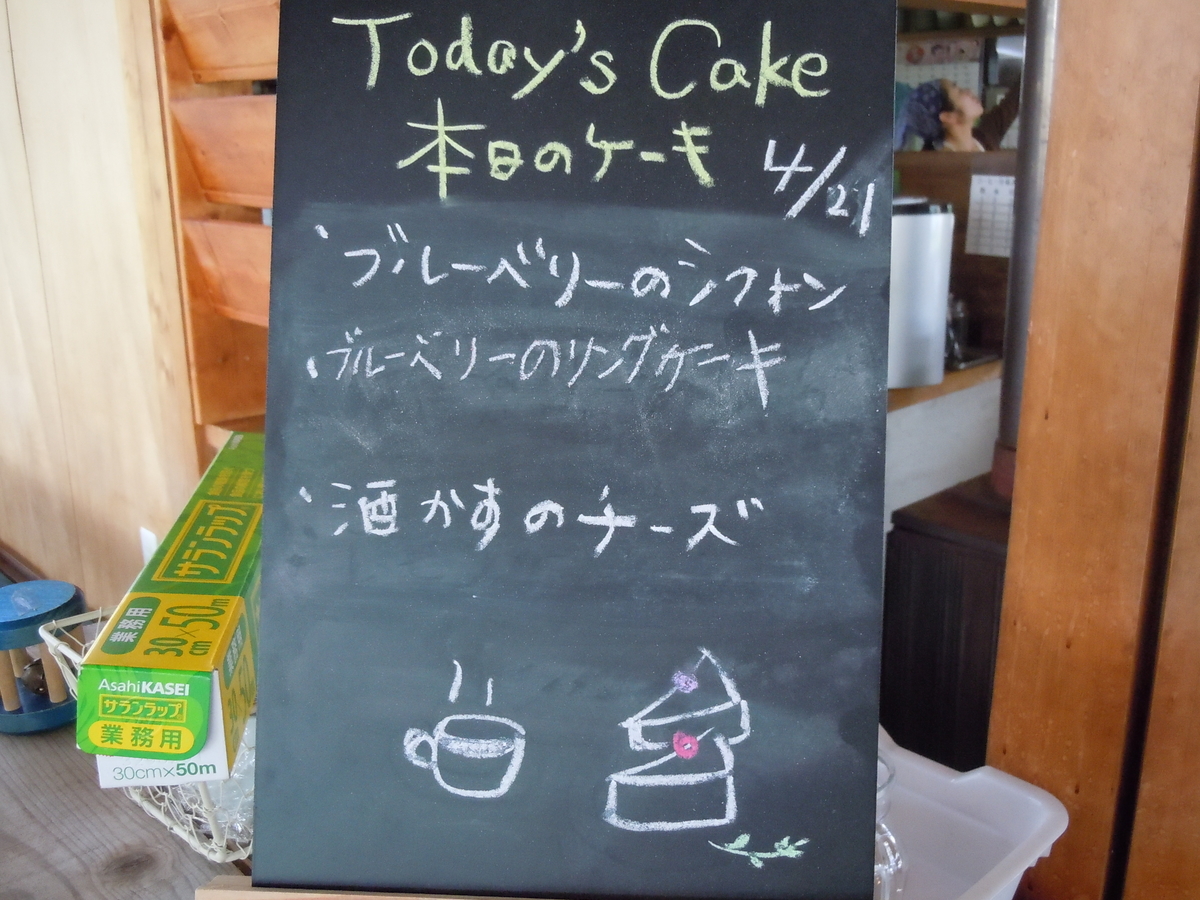 Today's Cake
本日のケーキ
4/21
・ブルーベリーのシフォン
・ブルーベリーのリングケーキ
・酒かすのチーズ
サランラップ
業務用
30cm×50m
AsahiKASEI
サランラップ
業務用
30cm×50m